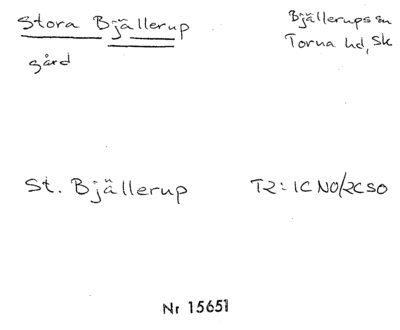 Stora Bjällerup
Bjällerups sn
Torna hd, Sk
gård
St. Bjällerup
T2: 1C NO/2C SO
Nr 15651